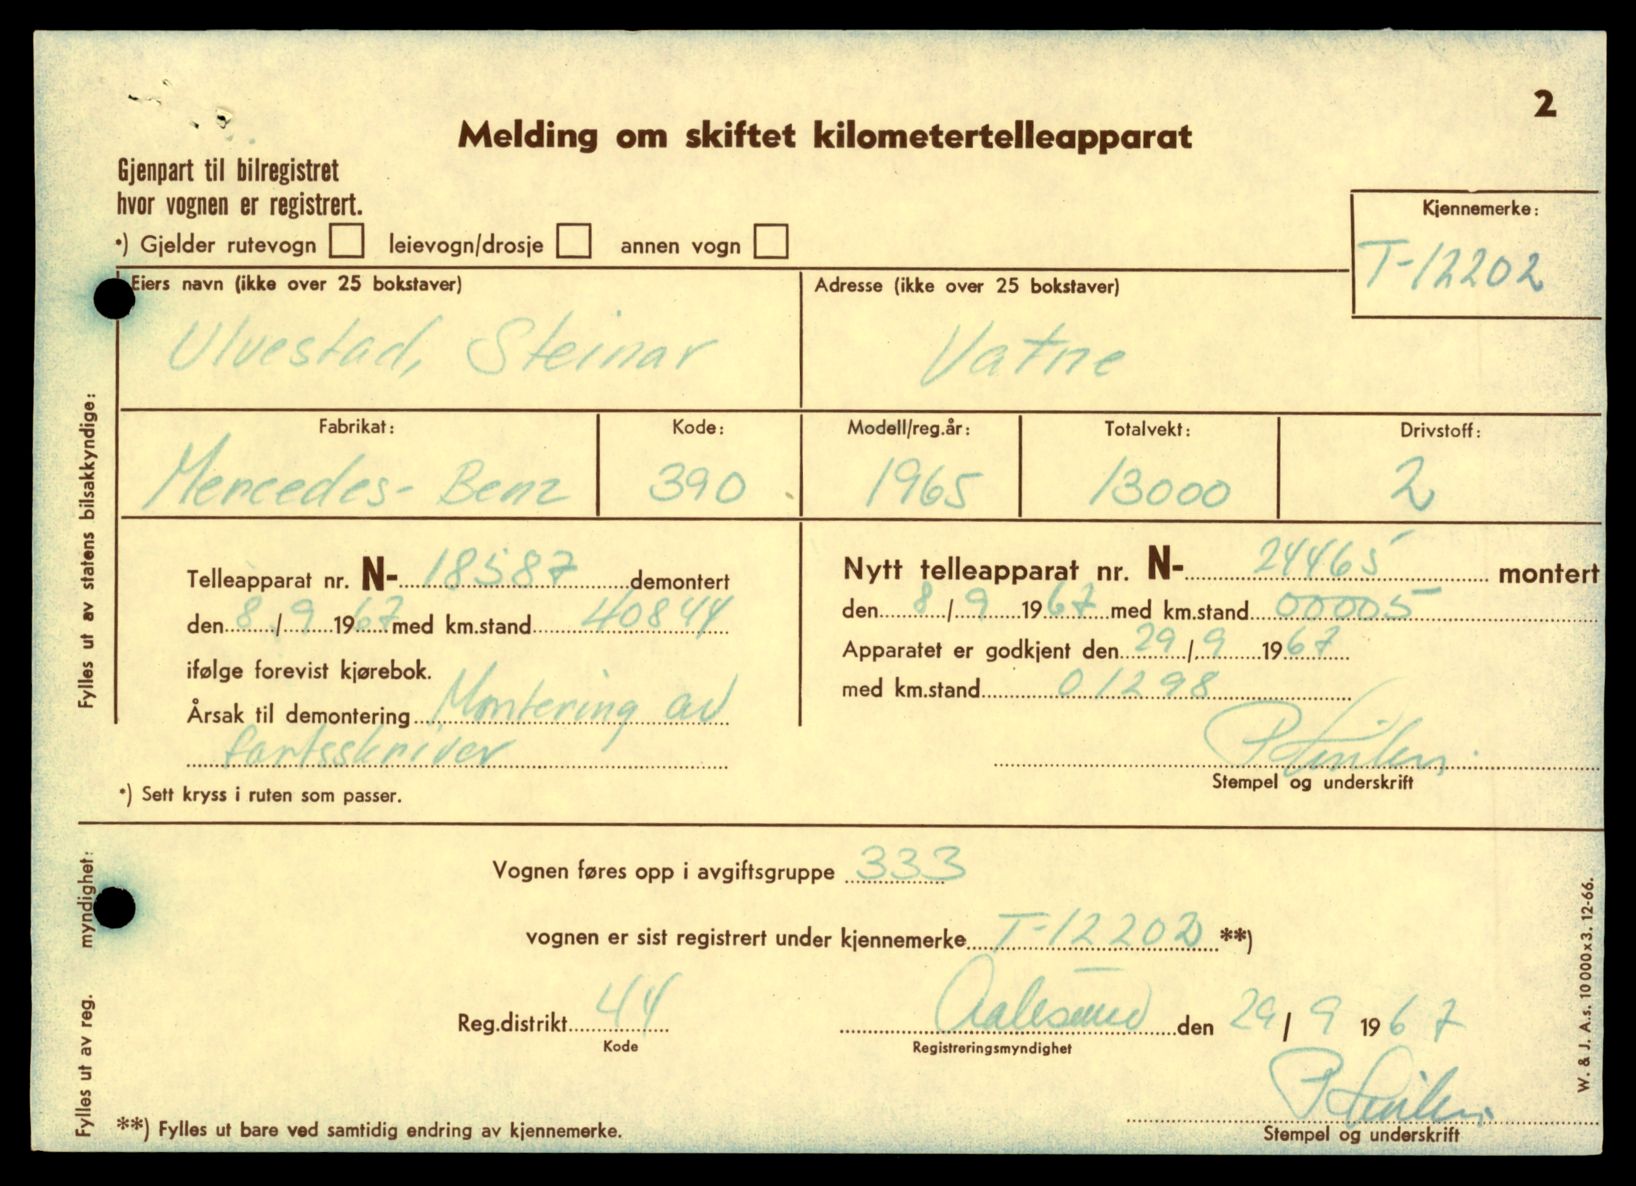 2
Melding om skiftet kilometertelleapparat
Gjenpart til bilregistret
hvor vognen er registrert.
*) Gjelder rutevogn leievogn/drosje annen vogn
Kjennemerke:
T-12202
Eiers navn (ikke over 25 bokstaver)
Ulvestad, Steinar
Adresse (ikke over 25 bokstaver)
Vatne
Fabrikat:
Mercedes-Benz
Kode:
390
Modell/reg.år:
1965
Totalvekt:
13000
Drivstoff:
2
Telleapparat nr. N- 18587 demontert
den 8/9 1967 med km.stand 40844
ifølge forevist kjørebok.
Årsak til demontering Montering av
fartsskriver
Nytt telleapparat nr. N- 24465 montert
den 8/9 1967 med km.stand 00005
Apparatet er godkjent den 29/9 1967
med km.stand 01298
Stempel og underskrift
*) Sett kryss i ruten som passer.
Fylles ut av statens bilsakkyndige:
Vognen føres opp i avgiftsgruppe 333
vognen er sist registrert under kjennemerke T-12202 **)
Reg.distrikt 44
Kode
Aalesund den 29/9 1967
Registreringsmyndighet
Stempel og underskrift
**) Fylles ut bare ved samtidig endring av kjennemerke.
Fylles ut av reg. myndighet:
W. & J. A.s. 10 000 x 3. 12-66.